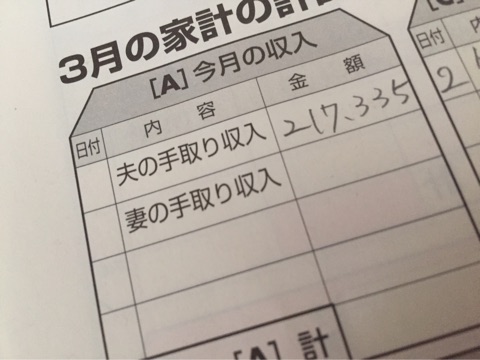 3月の家計の計
[A]今月の収入
日付 内容 金額
夫の手取り収入 217、335
妻の手取り収入
[A] 計
日付
2